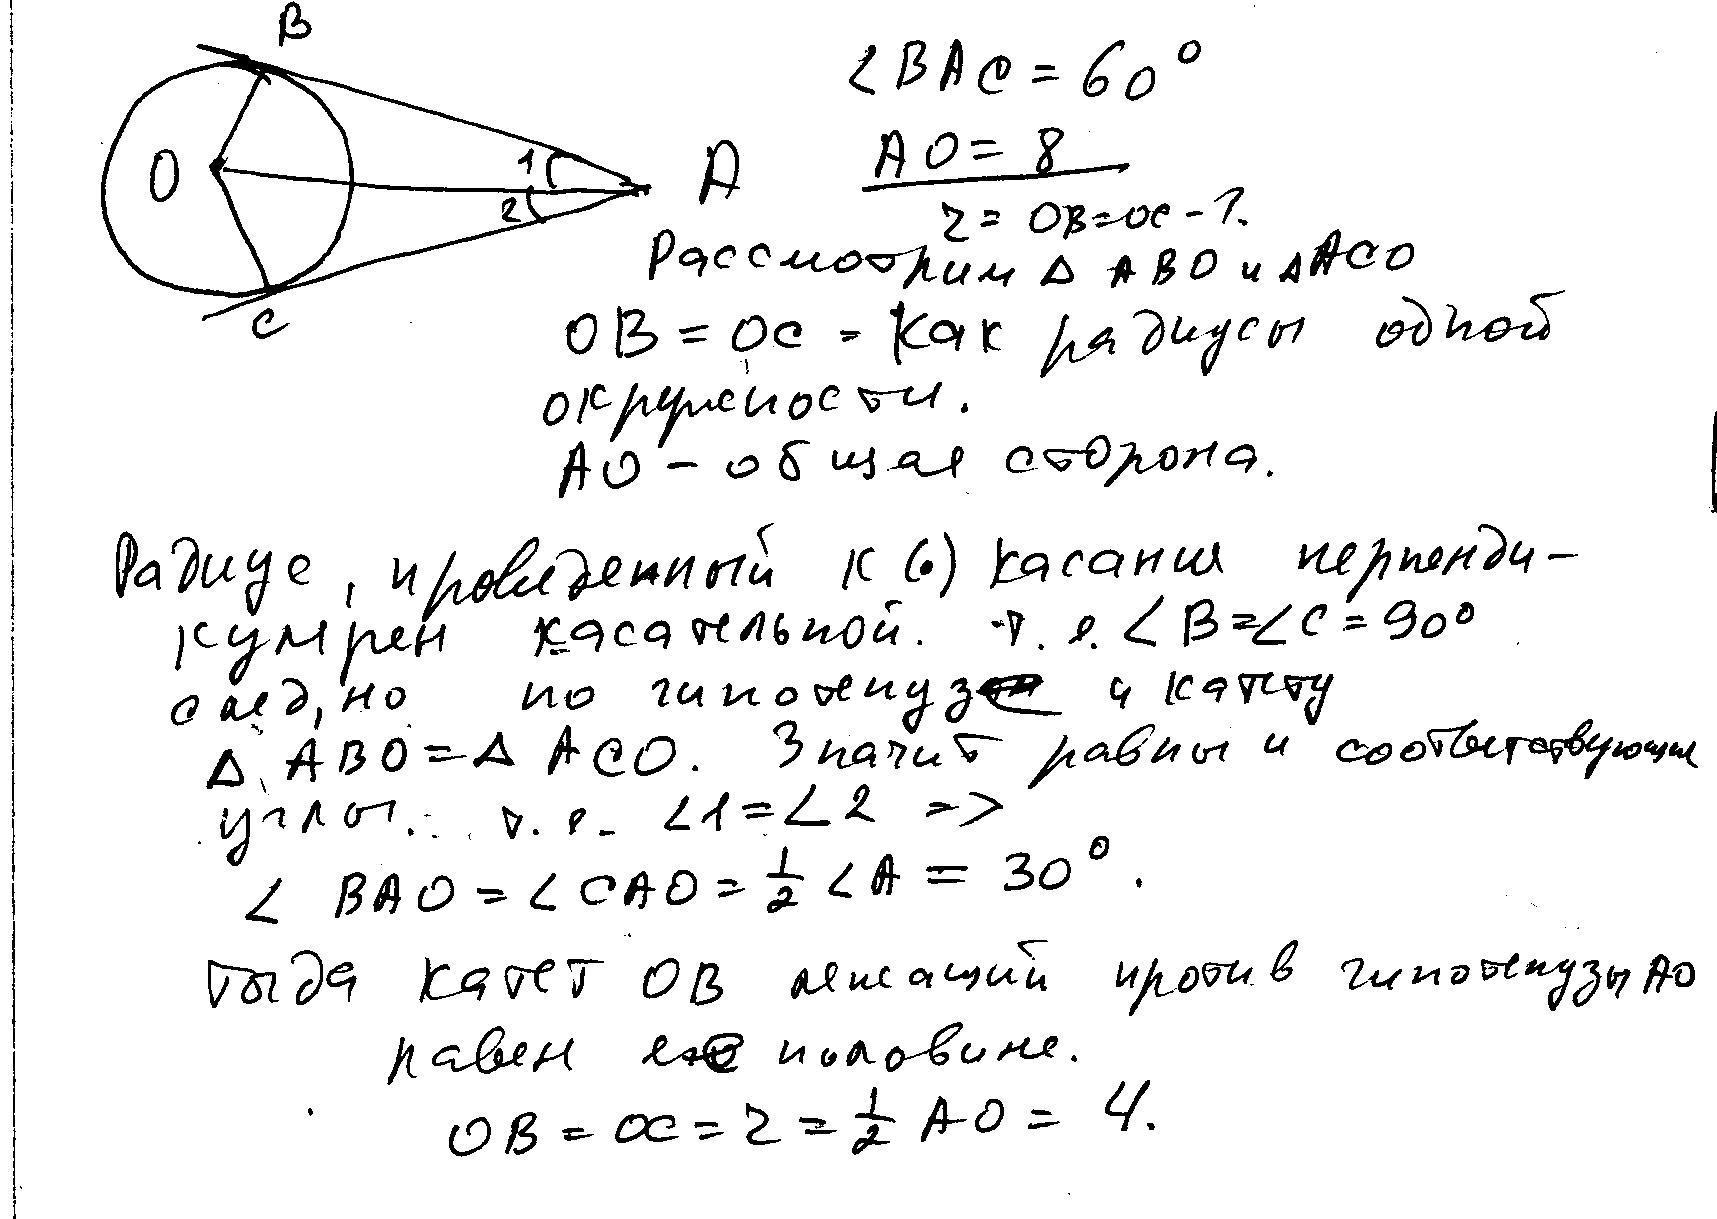 B
O
1
2
A
C
∠BAC = 60°
AO = 8
r = OB=OC - ?.
Рассмотрим △ ABO и △ACO
OB = OC - как радиусы одной
окружности.
AO - общая сторона.
Радиус, проведенный к (•) касания перпенди-
кулярен касательной. т.е. ∠B=∠C=90°
след,но по гипотенузе и катету
△ ABO = △ ACO. Значит равны и соответствующие
углы. т.е. ∠1=∠2 =>
∠ BAO = ∠CAO = 1/2 ∠A = 30°.
тогда катет OB лежащий против гипотенузы AO
равен ее половине.
OB = OC = r = 1/2 AO = 4.